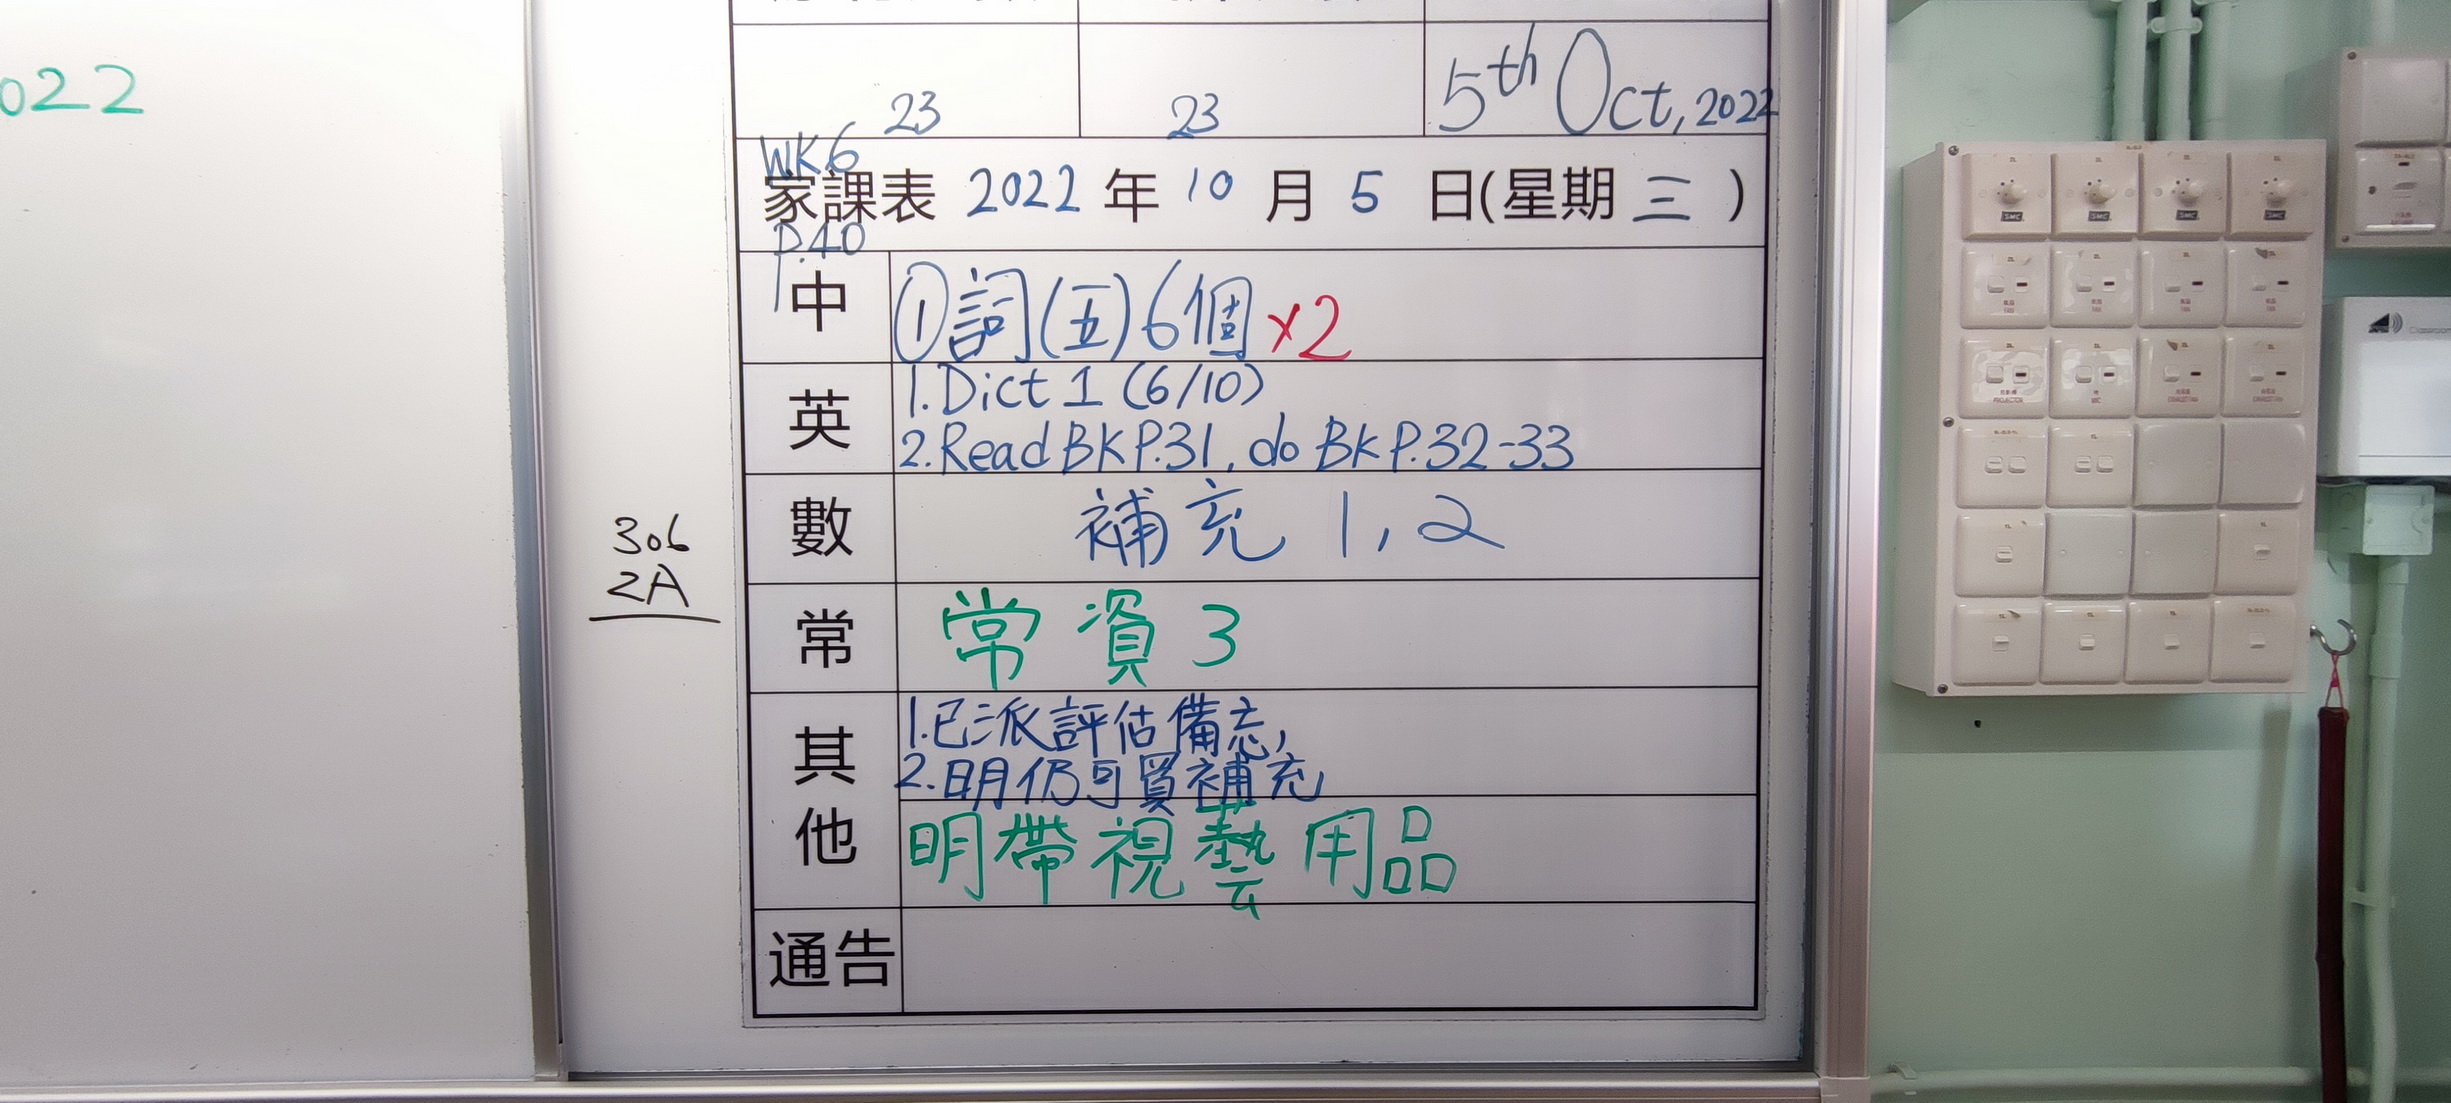 022
23
23
5th Oct, 2022
WK6
家課表 2022 年 10 月 5 日(星期 三 )
P.40
中
①詞(五)6個×2
英
1. Dict 1 (6/10)
2. Read BK P.31, do BK P.32-33
數
補充 1, 2
306
2A
常
常資 3
其他
1. 已派評估備忘,
2. 明仍可買補充
明帶視藝用品
通告
SMC
SMC
SMC
SMC
PROJECTOR
MIC
Classroom